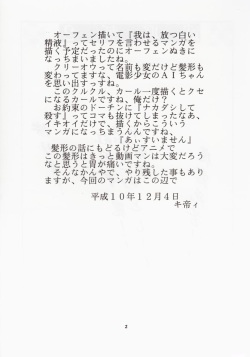 オーフェン描いて『我は、放つ白い
精液』ってセリフを言わせるマンガを
描く予定だったのにオーフェンぬきに
なっちまいましたね。
クリーオウって名前も変だけど髪形も
変わってますな、電影少女のＡＩちゃん
を思い出すっすね。
このクルクル、カール一度描くとクセ
になるカールですね、俺だけ？
お約束のドーチンに『ナカダシして
殺す』ってコマも抜けてしまったなあ、
イキオイだけで、描くからこういう
マンガになっちまうんですね、
『あぃすいません』
髪形の話にもどるけどアニメで
この髪形はきっと動画マンは大変だろう
なと思うと胃が痛いですね。
そんなかんやで、やり残した事もあり
ますが、今回のマンガはこの辺で
平成１０年１２月４日
キ帝ィ
2